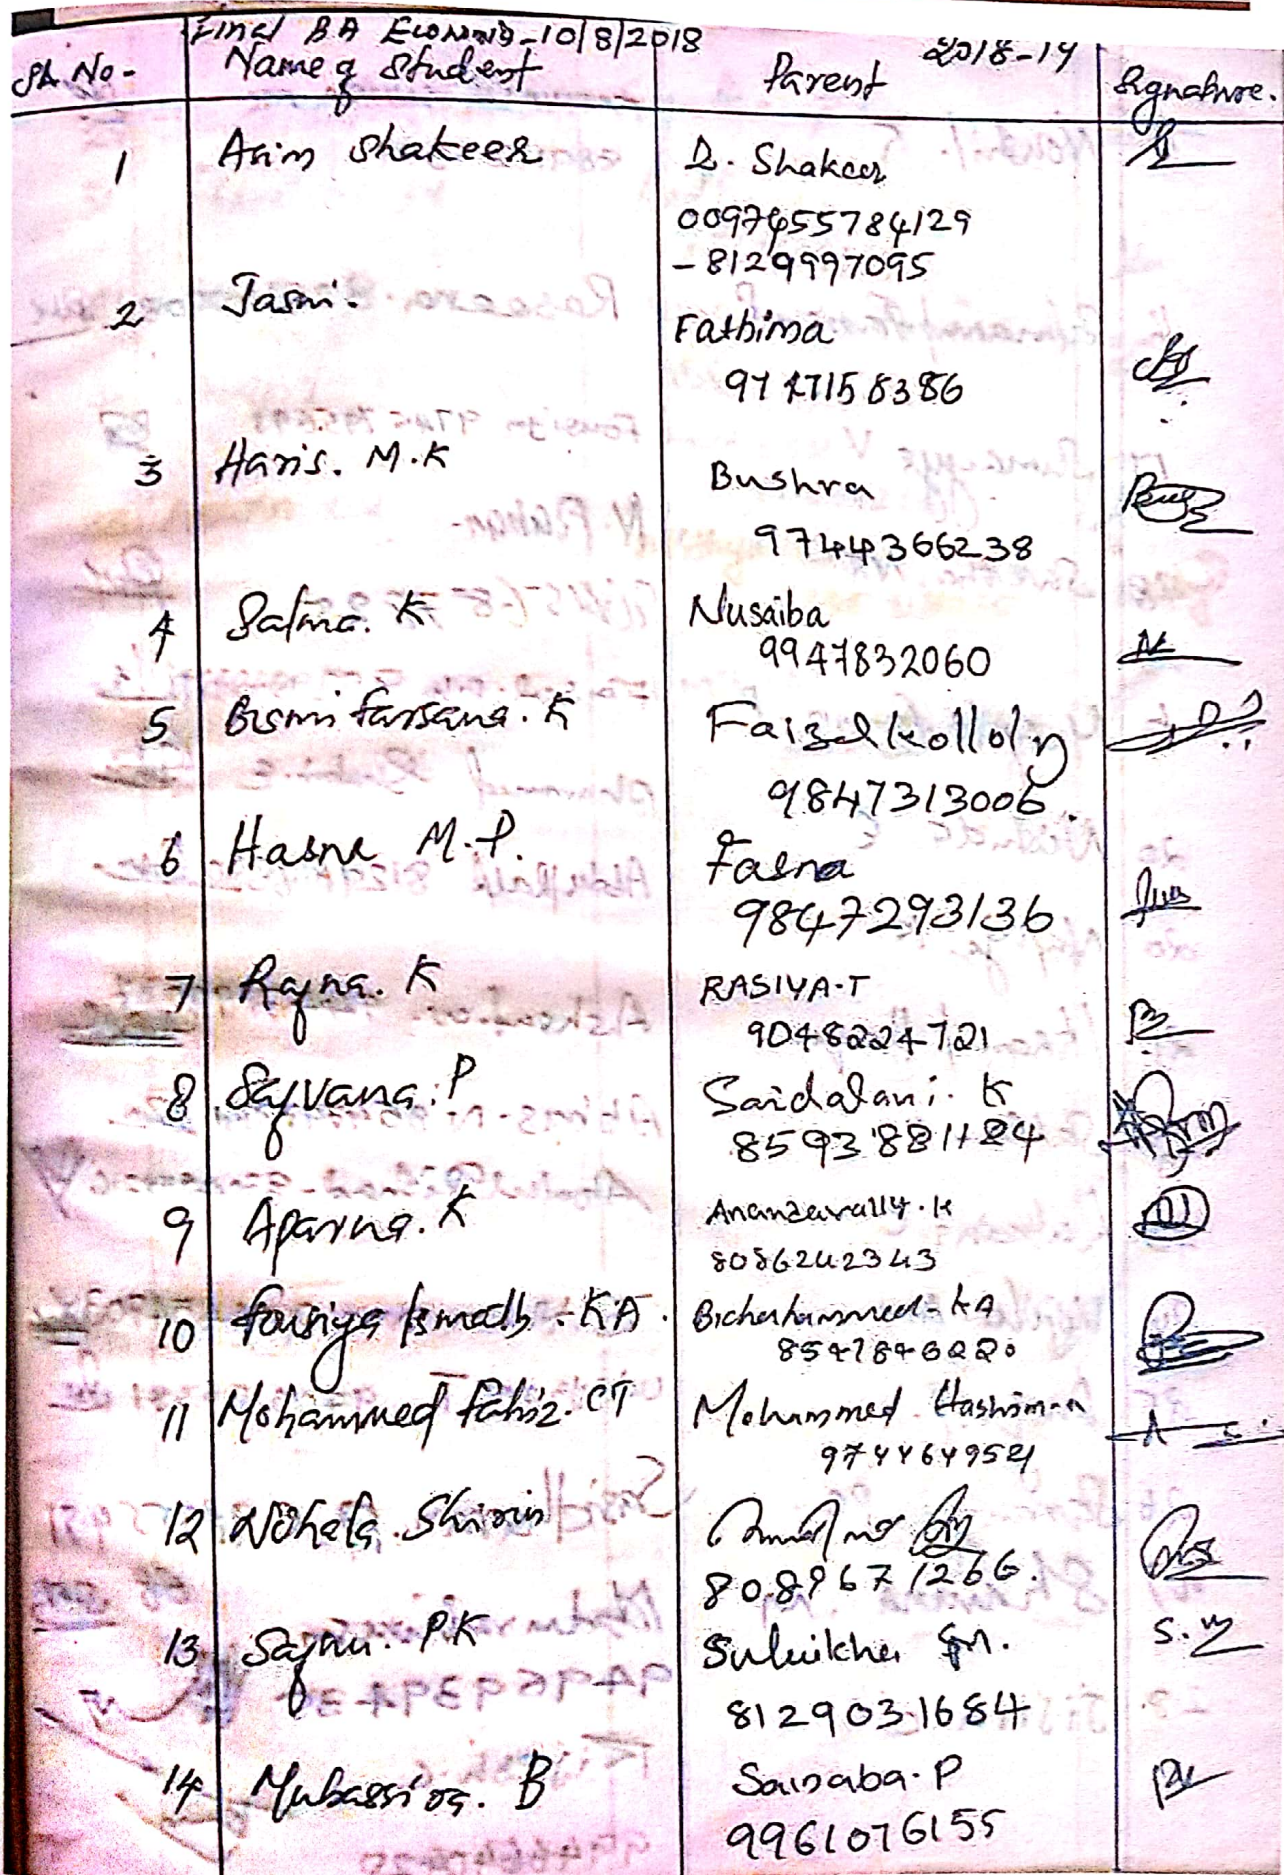 Final BA Economics-10/8/2018 2018-19
Sl. No- Name of Student Parent Signature.
1 Asim Shakeer D. Shakeer
0097455784129
- 8129997095
2 Jasmi. Fathima
9747158386
3 Haris. M.K Bushra
9744366238
4 Salma. K Nusaiba
9947832060
5 Bismi farsana. K Faizal kolloly
9847313006
6 Hasna M.P. Fasna
9847293136
7 Rajna. K RASIYA.T
9048224721
8 Sajvana. P Saidalavi. K
8593881184
9 Aparna. K Anandavally.K
8086242343
10 fousiya Ismath - KA. KA
8547846220
11 Mohammed fahiz. CT Mohammed Hashiman
9744649521
12 Nihala Shirin
8089671266.
13 Sajna. PK Sulaikha
8129031684
14 Mubassira. B Sainaba. P
9961076155